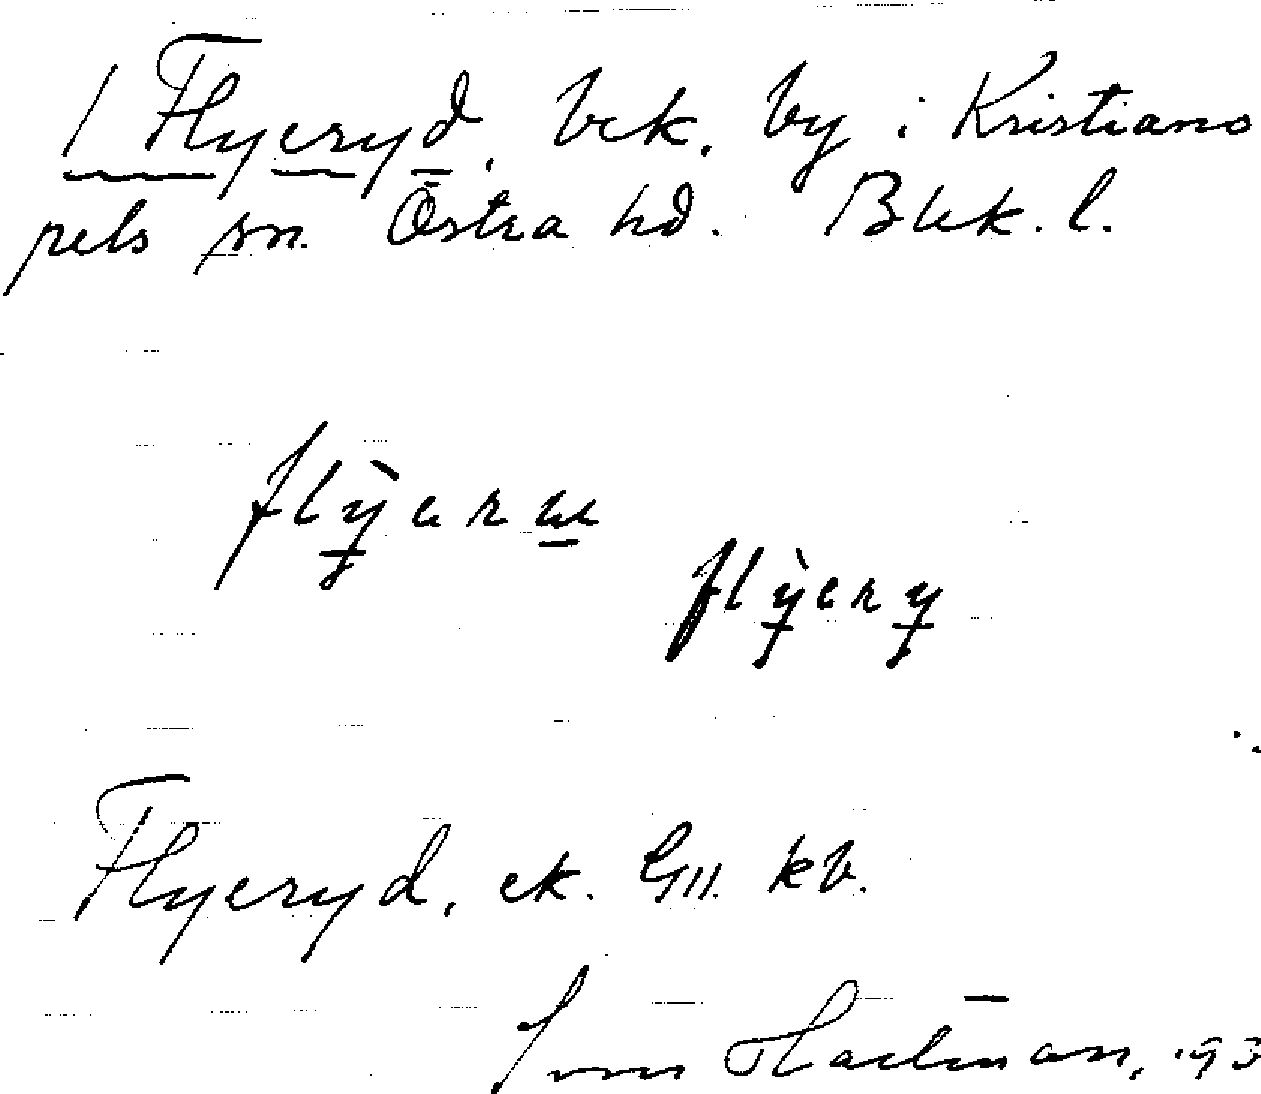 1 Flyeryd, bek. by i Kristiano
pels sn. Östra hd. Blek. l.
flỳeru
flỳery
Flyeryd, ek. GII. kb.
Hartman, 193